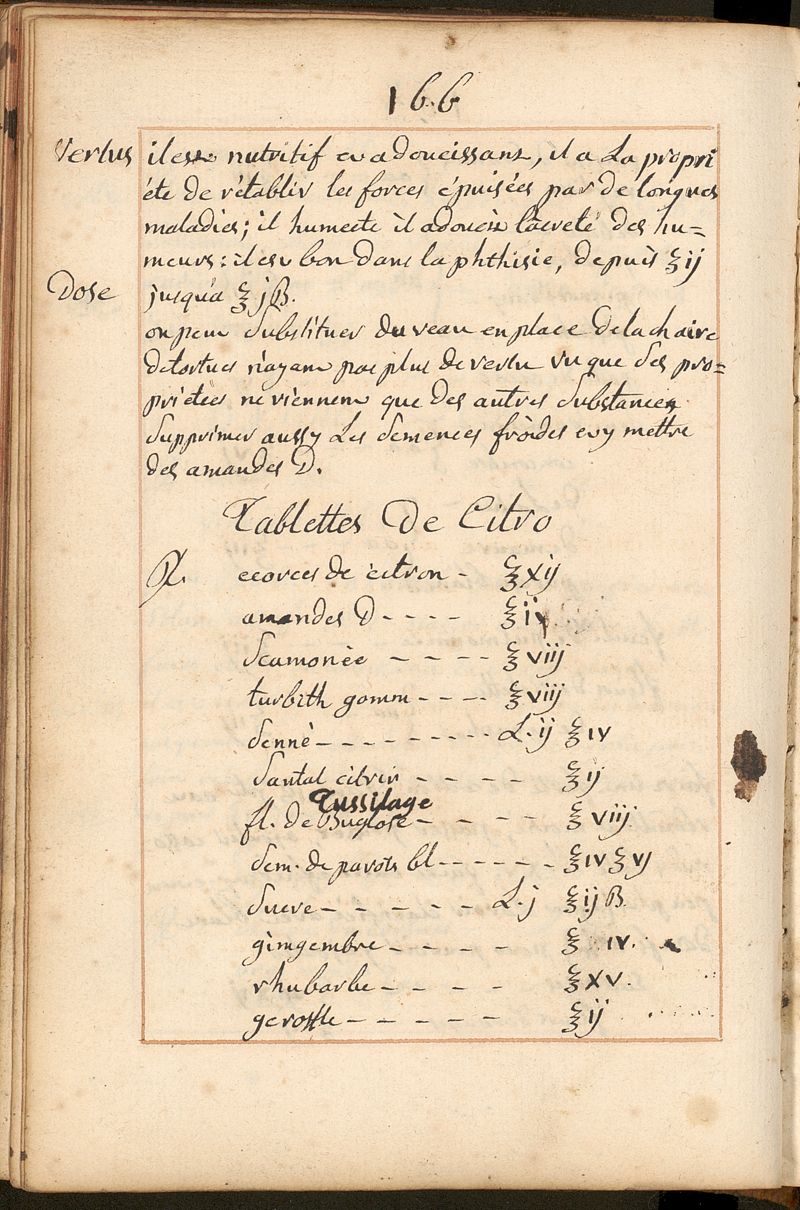 166
Vertus il est nutritif et adoucissant, il a La propri
été de rétablir les forces épuisées par de longues
maladies; il humecte il adoucit lâcreté des hu=
meurs: il est bon dans la phthisie, depuis ℥ij
Dose jusqua ℥jß.
on peut Substituer du veau en place de la chaire
de tortues n'ayant pas plus de vertu vu que Ses pro=
priétées ne viennent que des autres Substances
Supprimer aussy Les Semences froides et y mettre
des amandes D.
Tablettes De Citro
℞. ecorces de citron - ℥xij
amandes D - - - - ℥iv
Scamonée - - - - ℥viij
turbith gomm - - - - ℥viij
Senné - - - - - - - - - L.ij ℥iv
Santal citrin - - - - ℥ij
Tussilage
fl. de Buglose - - - - ℥viij
Sem. de pavots bl - - - - - - ℥iv ℥vj
Sucre - - - - - - L.j ℥ijß
gimgembre - - - - ℥iv.
rhubarbe - - - - ℥xv.
geroffle - - - - - ℥ij